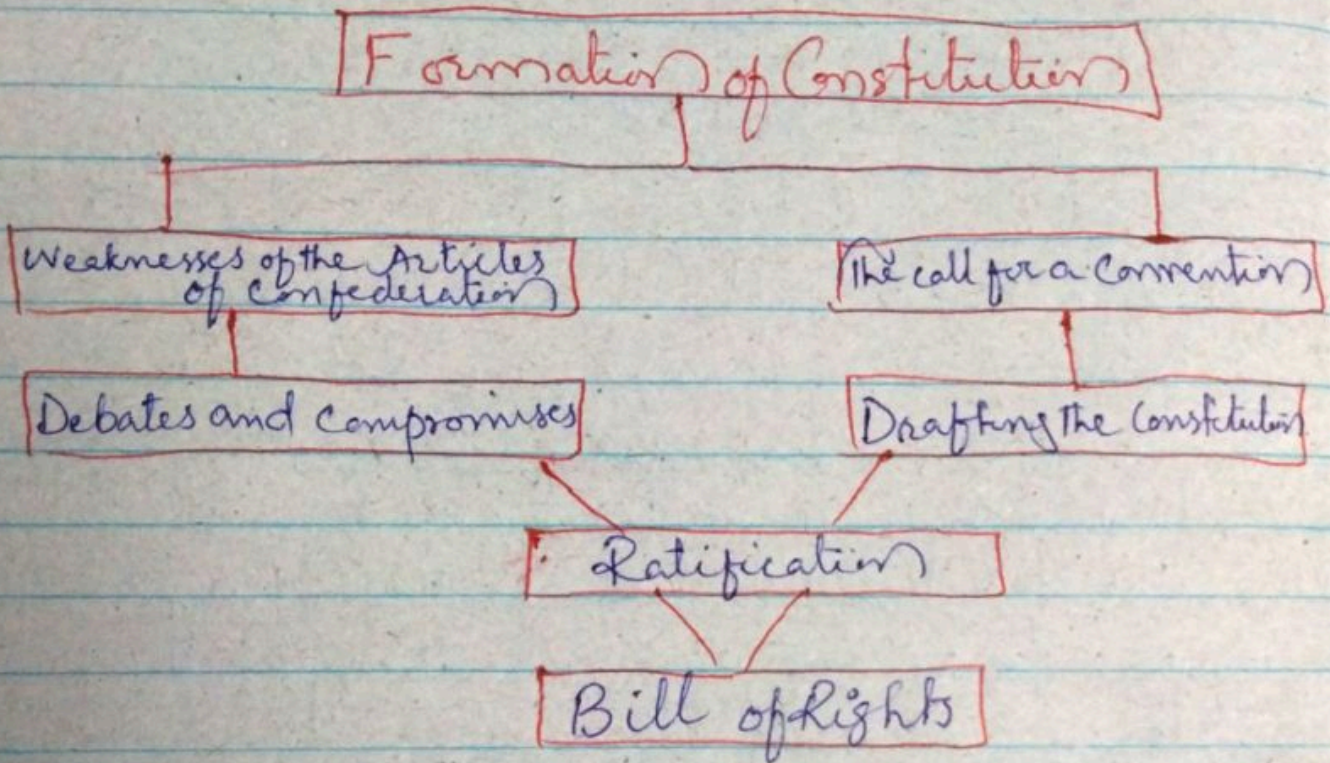 Formation of Constitution
Weaknesses of the Articles
of Confederation
The call for a Convention
Debates and Compromises
Drafting the Constitution
Ratification
Bill of Rights